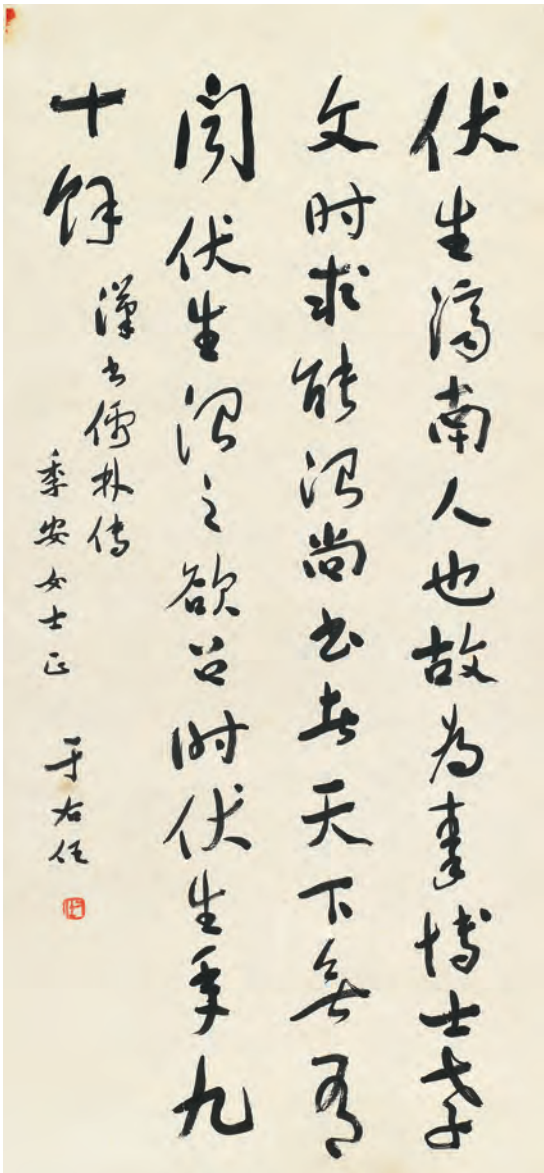 伏生濟南人也故為秦博士孝
文时求能治尚书者天下無有
闻伏生治之欲召时伏生年九
十餘
漢书儒林传
季安女士正
于右任